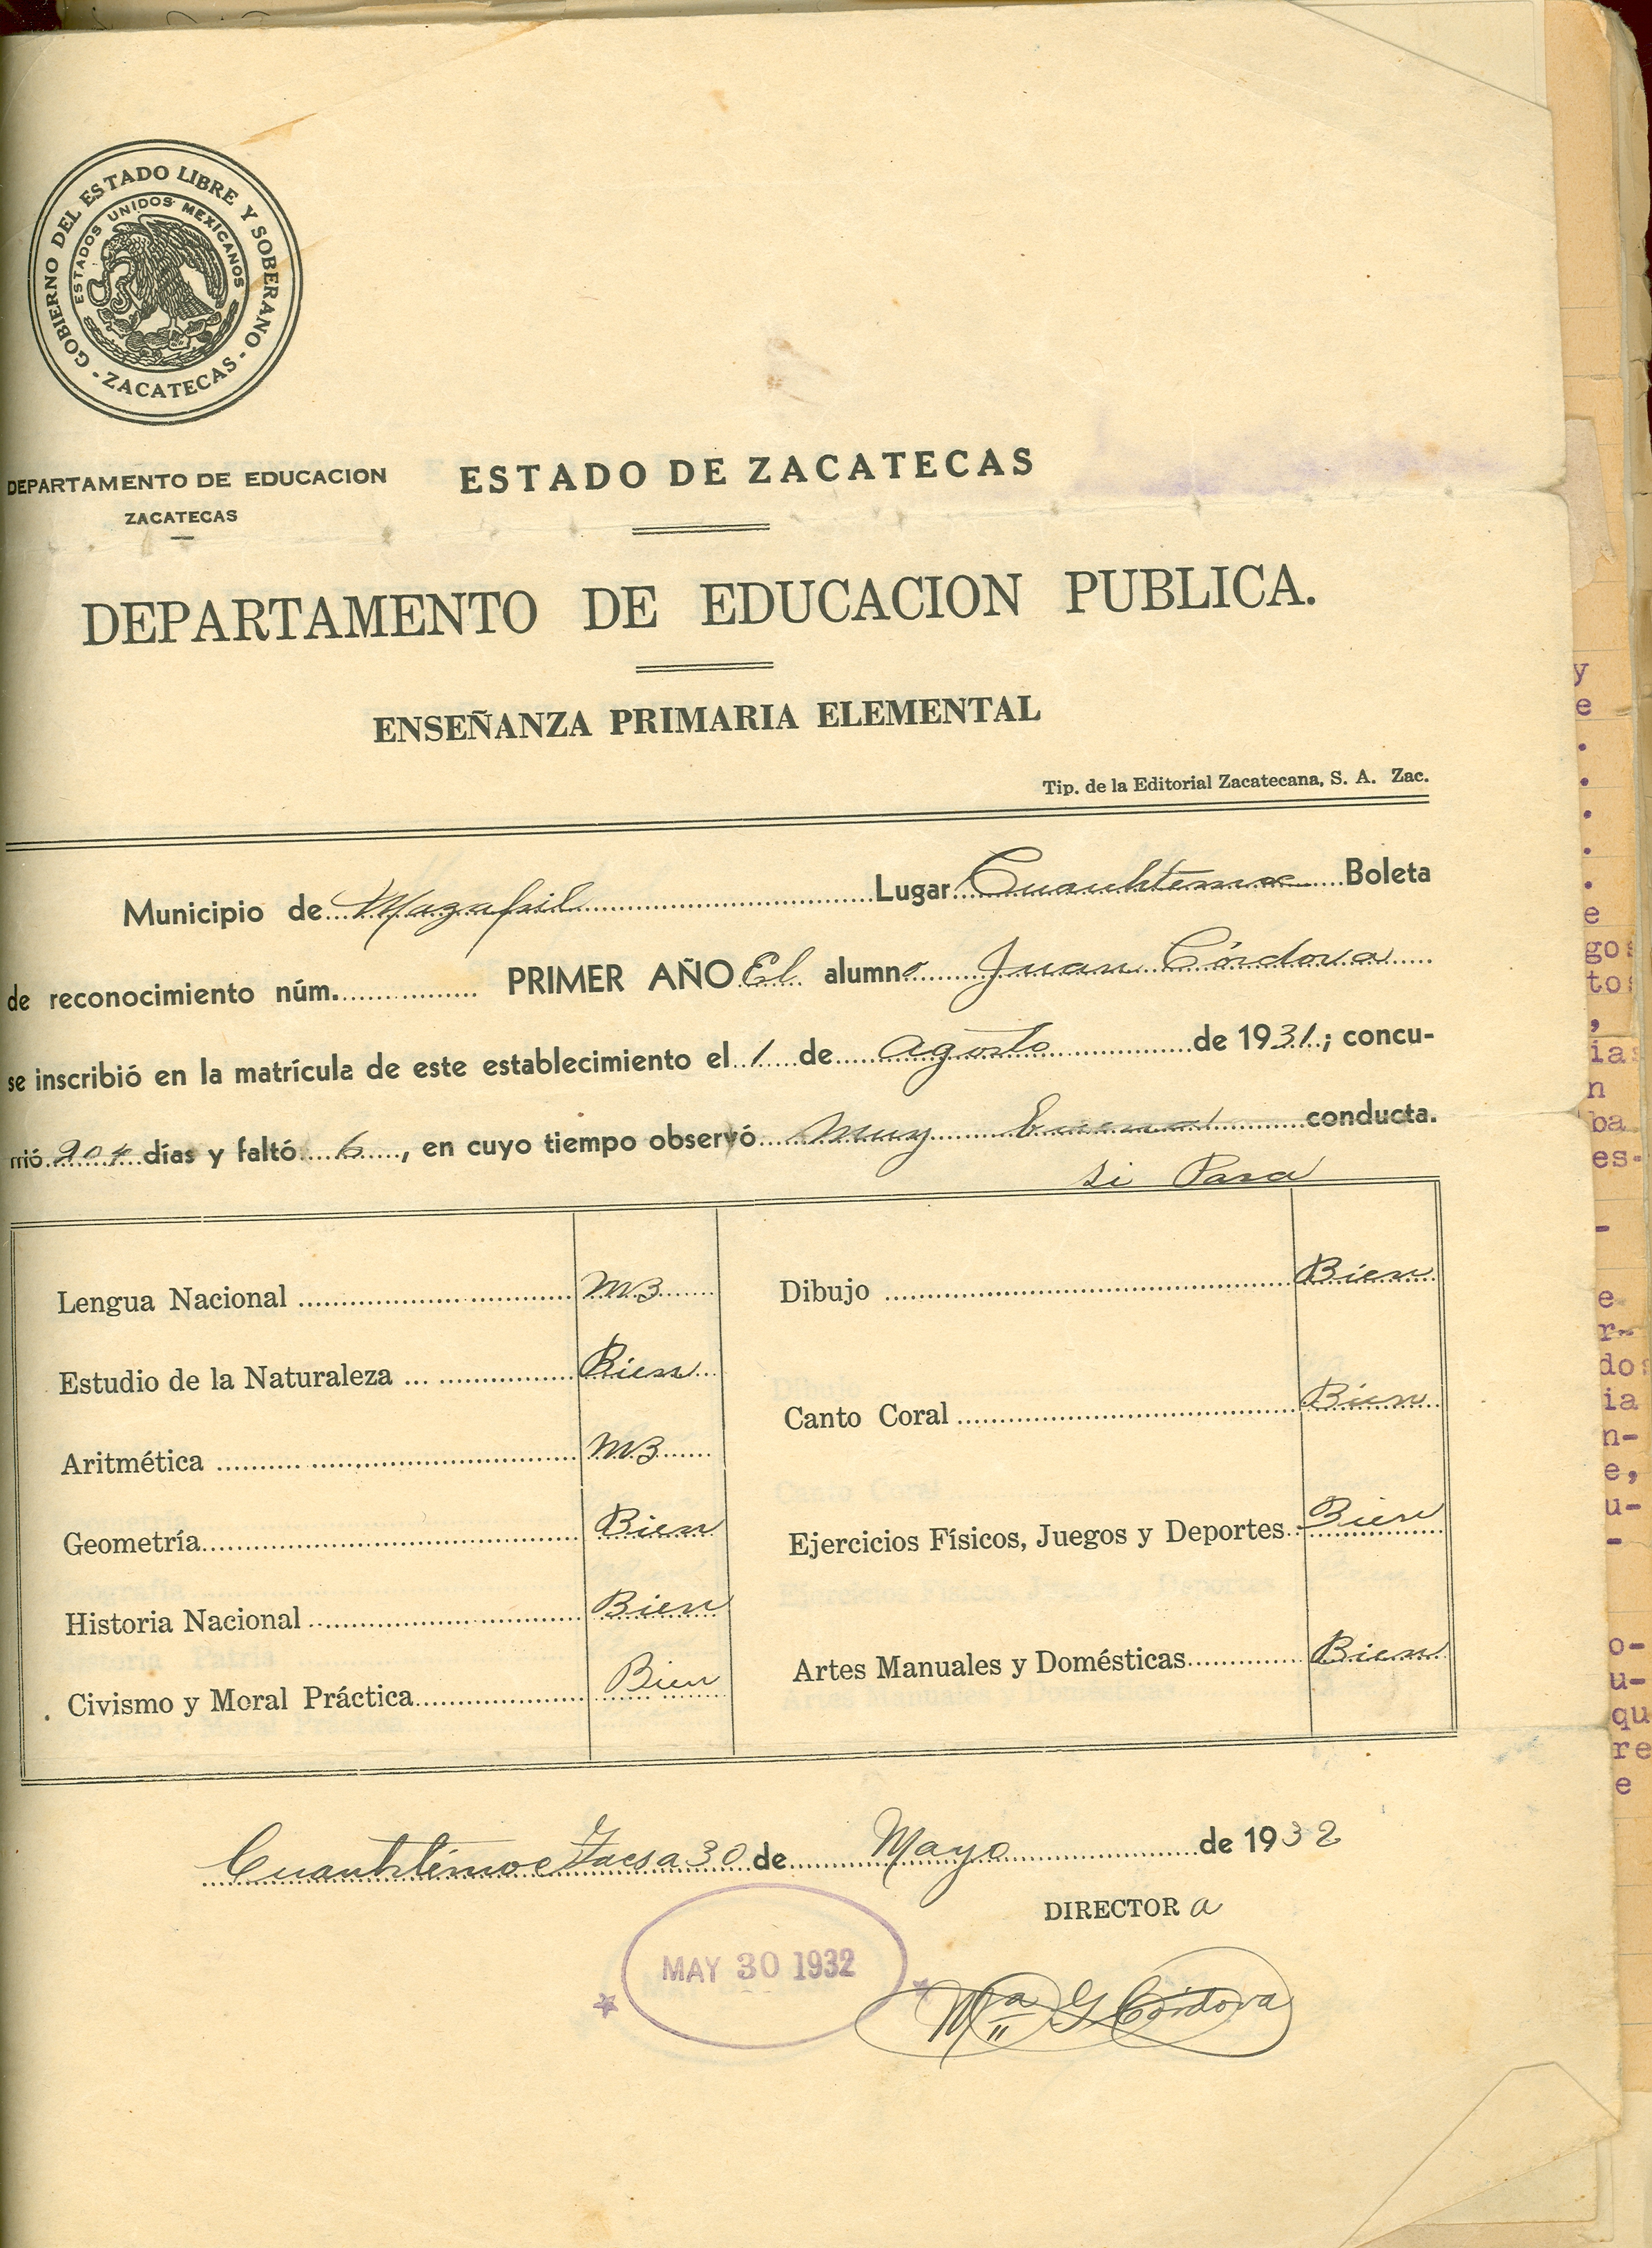 GOBIERNO DEL ESTADO LIBRE Y SOBERANO - ZACATECAS -
ESTADOS UNIDOS MEXICANOS
DEPARTAMENTO DE EDUCACION
ZACATECAS
ESTADO DE ZACATECAS
DEPARTAMENTO DE EDUCACION PUBLICA.
ENSEÑANZA PRIMARIA ELEMENTAL
Tip. de la Editorial Zacatecana, S. A. Zac.
Municipio de Mazapil Lugar Cuauhtemoc Boleta
de reconocimiento núm. PRIMER AÑO El alumno Juan Córdova
se inscribió en la matrícula de este establecimiento el 1 de agosto de 1931; concu-
rrió 204 días y faltó 6, en cuyo tiempo observó muy buena conducta.
si Pasa
Lengua Nacional MB
Estudio de la Naturaleza Bien
Aritmética MB
Geometría Bien
Historia Nacional Bien
Civismo y Moral Práctica Bien
Dibujo Bien
Canto Coral Bien
Ejercicios Físicos, Juegos y Deportes Bien
Artes Manuales y Domésticas Bien
Cuauhtémoc Zacs a 30 de Mayo de 1932
DIRECTOR a
MAY 30 1932
Mª G Córdova